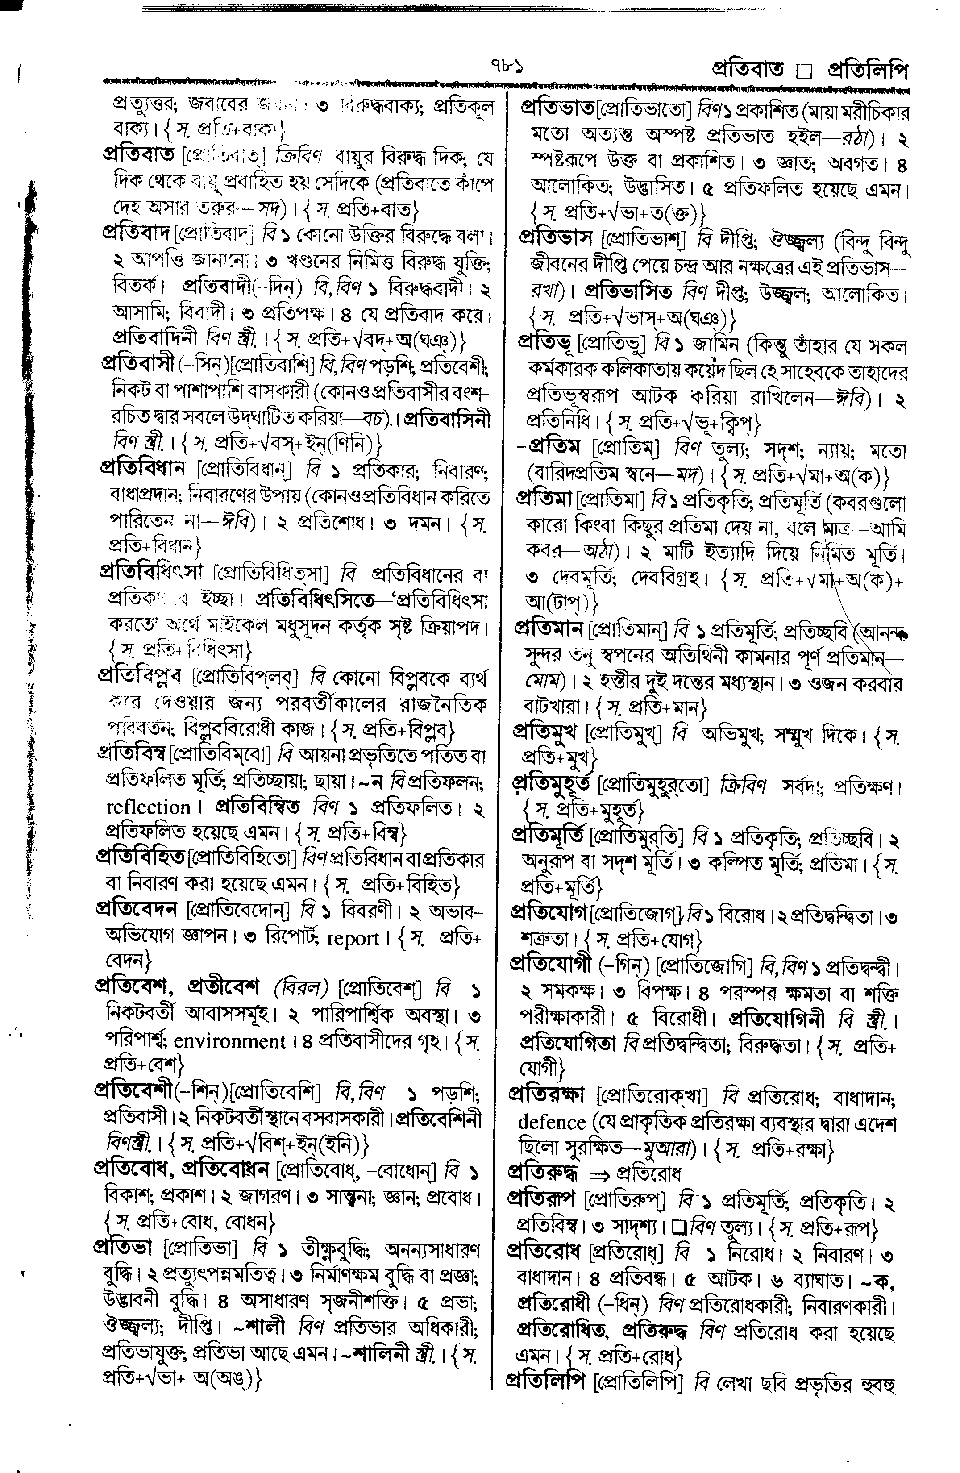 ৭৮১
প্রতিবাত □ প্রতিলিপি
প্রত্যুত্তর; জবাবের ৩ বিরুদ্ধবাক্য; প্রতিকূল
বাক্য। {স. প্রতি+বাক}
প্রতিবাত [প্রোতিবাত্] ক্রিবিণ বায়ুর বিরুদ্ধ দিক; যে
দিক থেকে বায়ু প্রবাহিত হয় সেদিকে (প্রতিবাতে কাঁপে
দেহ অসার তরুর—সদ)। {স. প্রতি+বাত}
প্রতিবাদ [প্রোতিবাদ্] বি ১ কোনো উক্তির বিরুদ্ধে বলা।
২ আপত্তি জানানো। ৩ খণ্ডনের নিমিত্ত বিরুদ্ধ যুক্তি;
বিতর্ক। প্রতিবাদী (–দিন্) বি,বিণ ১ বিরুদ্ধবাদী। ২
আসামি; বিবাদী। ৩ প্রতিপক্ষ। ৪ যে প্রতিবাদ করে।
প্রতিবাদিনী বিণ স্ত্রী.। {স. প্রতি+√বদ+অ(ঘঞ)}
প্রতিবাসী (–সিন্) [প্রোতিবাশি] বি,বিণ পড়শি; প্রতিবেশী;
নিকট বা পাশাপাশি বাসকারী (কোনও প্রতিবাসীর বংশ-
রচিত দ্বার সবলে উদ্‌ঘাটিত করিয়া—বচ)। প্রতিবাসিনী
বিণ স্ত্রী.। {স. প্রতি+√বস্+ইন্(ণিনি)}
প্রতিবিধান [প্রোতিবিধান্] বি ১ প্রতিকার; নিবারণ;
বাধাপ্রদান; নিবারণের উপায় (কোনও প্রতিবিধান করিতে
পারিতেন না—ঈবি)। ২ প্রতিশোধ। ৩ দমন। {স.
প্রতি+বিধান}
প্রতিবিধিৎসা [প্রোতিবিধিত্‌সা] বি প্রতিবিধানের বা
ইচ্ছা। প্রতিবিধিৎসিতে—'প্রতিবিধিৎসা
করতে' অর্থে মাইকেল মধুসূদন কর্তৃক সৃষ্ট ক্রিয়াপদ।
{স. প্রতি+বিধিৎসা}
প্রতিবিপ্লব [প্রোতিবিপ্‌লব্] বি কোনো বিপ্লবকে ব্যর্থ
করে দেওয়ার জন্য পরবর্তীকালের রাজনৈতিক
পরিবর্তন; বিপ্লববিরোধী কাজ। {স. প্রতি+বিপ্লব}
প্রতিবিম্ব [প্রোতিবিম্‌বো] বি আয়না প্রভৃতিতে পতিত বা
প্রতিফলিত মূর্তি; প্রতিচ্ছায়া; ছায়া। ~ন বি প্রতিফলন;
reflection। প্রতিবিম্বিত বিণ ১ প্রতিফলিত। ২
প্রতিফলিত হয়েছে এমন। {স. প্রতি+বিম্ব}
প্রতিবিহিত [প্রোতিবিহিতো] বিণ প্রতিবিধান বা প্রতিকার
বা নিবারণ করা হয়েছে এমন। {স. প্রতি+বিহিত}
প্রতিবেদন [প্রোতিবেদোন্] বি ১ বিবরণী। ২ অভাব-
অভিযোগ জ্ঞাপন। ৩ রিপোর্ট; report। {স. প্রতি+
বেদন}
প্রতিবেশ, প্রতীবেশ (বিরল) [প্রোতিবেশ্] বি ১
নিকটবর্তী আবাসসমূহ। ২ পারিপার্শ্বিক অবস্থা। ৩
পরিপার্শ্ব; environment। ৪ প্রতিবাসীদের গৃহ। {স.
প্রতি+বেশ}
প্রতিবেশী (–শিন্) [প্রোতিবেশি] বি,বিণ ১ পড়শি;
প্রতিবাসী। ২ নিকটবর্তী স্থানে বসবাসকারী। প্রতিবেশিনী
বিণ স্ত্রী.। {স. প্রতি+√বিশ্+ইন্(ইনি)}
প্রতিবোধ, প্রতিবোধন [প্রোতিবোধ্, –বোধোন্] বি ১
বিকাশ; প্রকাশ। ২ জাগরণ। ৩ সান্ত্বনা; জ্ঞান; প্রবোধ।
{স. প্রতি+বোধ, বোধন}
প্রতিভা [প্রোতিভা] বি ১ তীক্ষ্ণবুদ্ধি; অনন্যসাধারণ
বুদ্ধি। ২ প্রত্যুৎপন্নমতিত্ব। ৩ নির্মাণক্ষম বুদ্ধি বা প্রজ্ঞা;
উদ্ভাবনী বুদ্ধি। ৪ অসাধারণ সৃজনীশক্তি। ৫ প্রভা;
ঔজ্জ্বল্য; দীপ্তি। ~শালী বিণ প্রতিভার অধিকারী;
প্রতিভাযুক্ত; প্রতিভা আছে এমন। ~শালিনী স্ত্রী.। {স.
প্রতি+√ভা+ অ(অঙ্)}
প্রতিভাত [প্রোতিভাতো] বিণ ১ প্রকাশিত (মায়া মরীচিকার
মতো অত্যন্ত অস্পষ্ট প্রতিভাত হইল—রঠা)। ২
স্পষ্টরূপে উক্ত বা প্রকাশিত। ৩ জ্ঞাত; অবগত। ৪
আলোকিত; উদ্ভাসিত। ৫ প্রতিফলিত হয়েছে এমন।
{স. প্রতি+√ভা+ত(ক্ত)}
প্রতিভাস [প্রোতিভাশ্] বি দীপ্তি; ঔজ্জ্বল্য (বিন্দু বিন্দু
জীবনের দীপ্তি পেয়ে চন্দ্র আর নক্ষত্রের এই প্রতিভাস—
রথা)। প্রতিভাসিত বিণ দীপ্ত; উজ্জ্বল; আলোকিত।
{স. প্রতি+√ভাস্+অ(ঘঞ)}
প্রতিভূ [প্রোতিভু] বি ১ জামিন (কিন্তু তাঁহার যে সকল
কর্মকারক কলিকাতায় কয়েদ ছিল হে সাহেবকে তাহাদের
প্রতিভূস্বরূপ আটক করিয়া রাখিলেন—ঈবি)। ২
প্রতিনিধি। {স. প্রতি+√ভূ+ক্বিপ্}
-প্রতিম [প্রোতিম্] বিণ তুল্য; সদৃশ; ন্যায়; মতো
(বারিদপ্রতিম স্বনে—মদ)। {স. প্রতি+√মা+অ(ক)}
প্রতিমা [প্রোতিমা] বি ১ প্রতিকৃতি; প্রতিমূর্তি (কবরগুলো
কারো কিংবা কিছুর প্রতিমা দেয় না, বলে মাত্র—আমি
কবর—অঠা)। ২ মাটি ইত্যাদি দিয়ে নির্মিত মূর্তি।
৩ দেবমূর্তি; দেববিগ্রহ। {স. প্রতি+√মা+অ(ক)+
আ(টাপ্)}
প্রতিমান [প্রোতিমান্] বি ১ প্রতিমূর্তি; প্রতিচ্ছবি (আনন্দ
সুন্দর তনু স্বপনের অতিথিনী কামনার পূর্ণ প্রতিমান—
মোম)। ২ হস্তীর দুই দন্তের মধ্যস্থান। ৩ ওজন করবার
বাটখারা। {স. প্রতি+মান}
প্রতিমুখ [প্রোতিমুখ্] বি অভিমুখ; সম্মুখ দিকে। {স.
প্রতি+মুখ}
প্রতিমুহূর্ত [প্রোতিমুহুর্‌তো] ক্রিবিণ সর্বদা; প্রতিক্ষণ।
{স. প্রতি+মুহূর্ত}
প্রতিমূর্তি [প্রোতিমুর্‌তি] বি ১ প্রতিকৃতি; প্রতিচ্ছবি। ২
অনুরূপ বা সদৃশ মূর্তি। ৩ কল্পিত মূর্তি; প্রতিমা। {স.
প্রতি+মূর্তি}
প্রতিযোগ [প্রোতিজোগ্] বি ১ বিরোধ। ২ প্রতিদ্বন্দ্বিতা। ৩
শত্রুতা। {স. প্রতি+যোগ}
প্রতিযোগী (–গিন্) [প্রোতিজোগি] বি,বিণ ১ প্রতিদ্বন্দ্বী।
২ সমকক্ষ। ৩ বিপক্ষ। ৪ পরস্পর ক্ষমতা বা শক্তি
পরীক্ষাকারী। ৫ বিরোধী। প্রতিযোগিনী বি স্ত্রী.।
প্রতিযোগিতা বি প্রতিদ্বন্দ্বিতা; বিরুদ্ধতা। {স. প্রতি+
যোগী}
প্রতিরক্ষা [প্রোতিরোক্‌খা] বি প্রতিরোধ; বাধাদান;
defence (যে প্রাকৃতিক প্রতিরক্ষা ব্যবস্থার দ্বারা এদেশ
ছিলো সুরক্ষিত—মুআরা)। {স. প্রতি+রক্ষা}
প্রতিরুদ্ধ ⇒ প্রতিরোধ
প্রতিরূপ [প্রোতিরুপ্] বি ১ প্রতিমূর্তি; প্রতিকৃতি। ২
প্রতিবিম্ব। ৩ সাদৃশ্য। □ বিণ তুল্য। {স. প্রতি+রূপ}
প্রতিরোধ [প্রোতিরোধ্] বি ১ নিরোধ। ২ নিবারণ। ৩
বাধাদান। ৪ প্রতিবন্ধ। ৫ আটক। ৬ ব্যাঘাত। ~ক,
প্রতিরোধী (–ধিন্) বিণ প্রতিরোধকারী; নিবারণকারী।
প্রতিরোধিত, প্রতিরুদ্ধ বিণ প্রতিরোধ করা হয়েছে
এমন। {স. প্রতি+রোধ}
প্রতিলিপি [প্রোতিলিপি] বি লেখা ছবি প্রভৃতির হুবহু